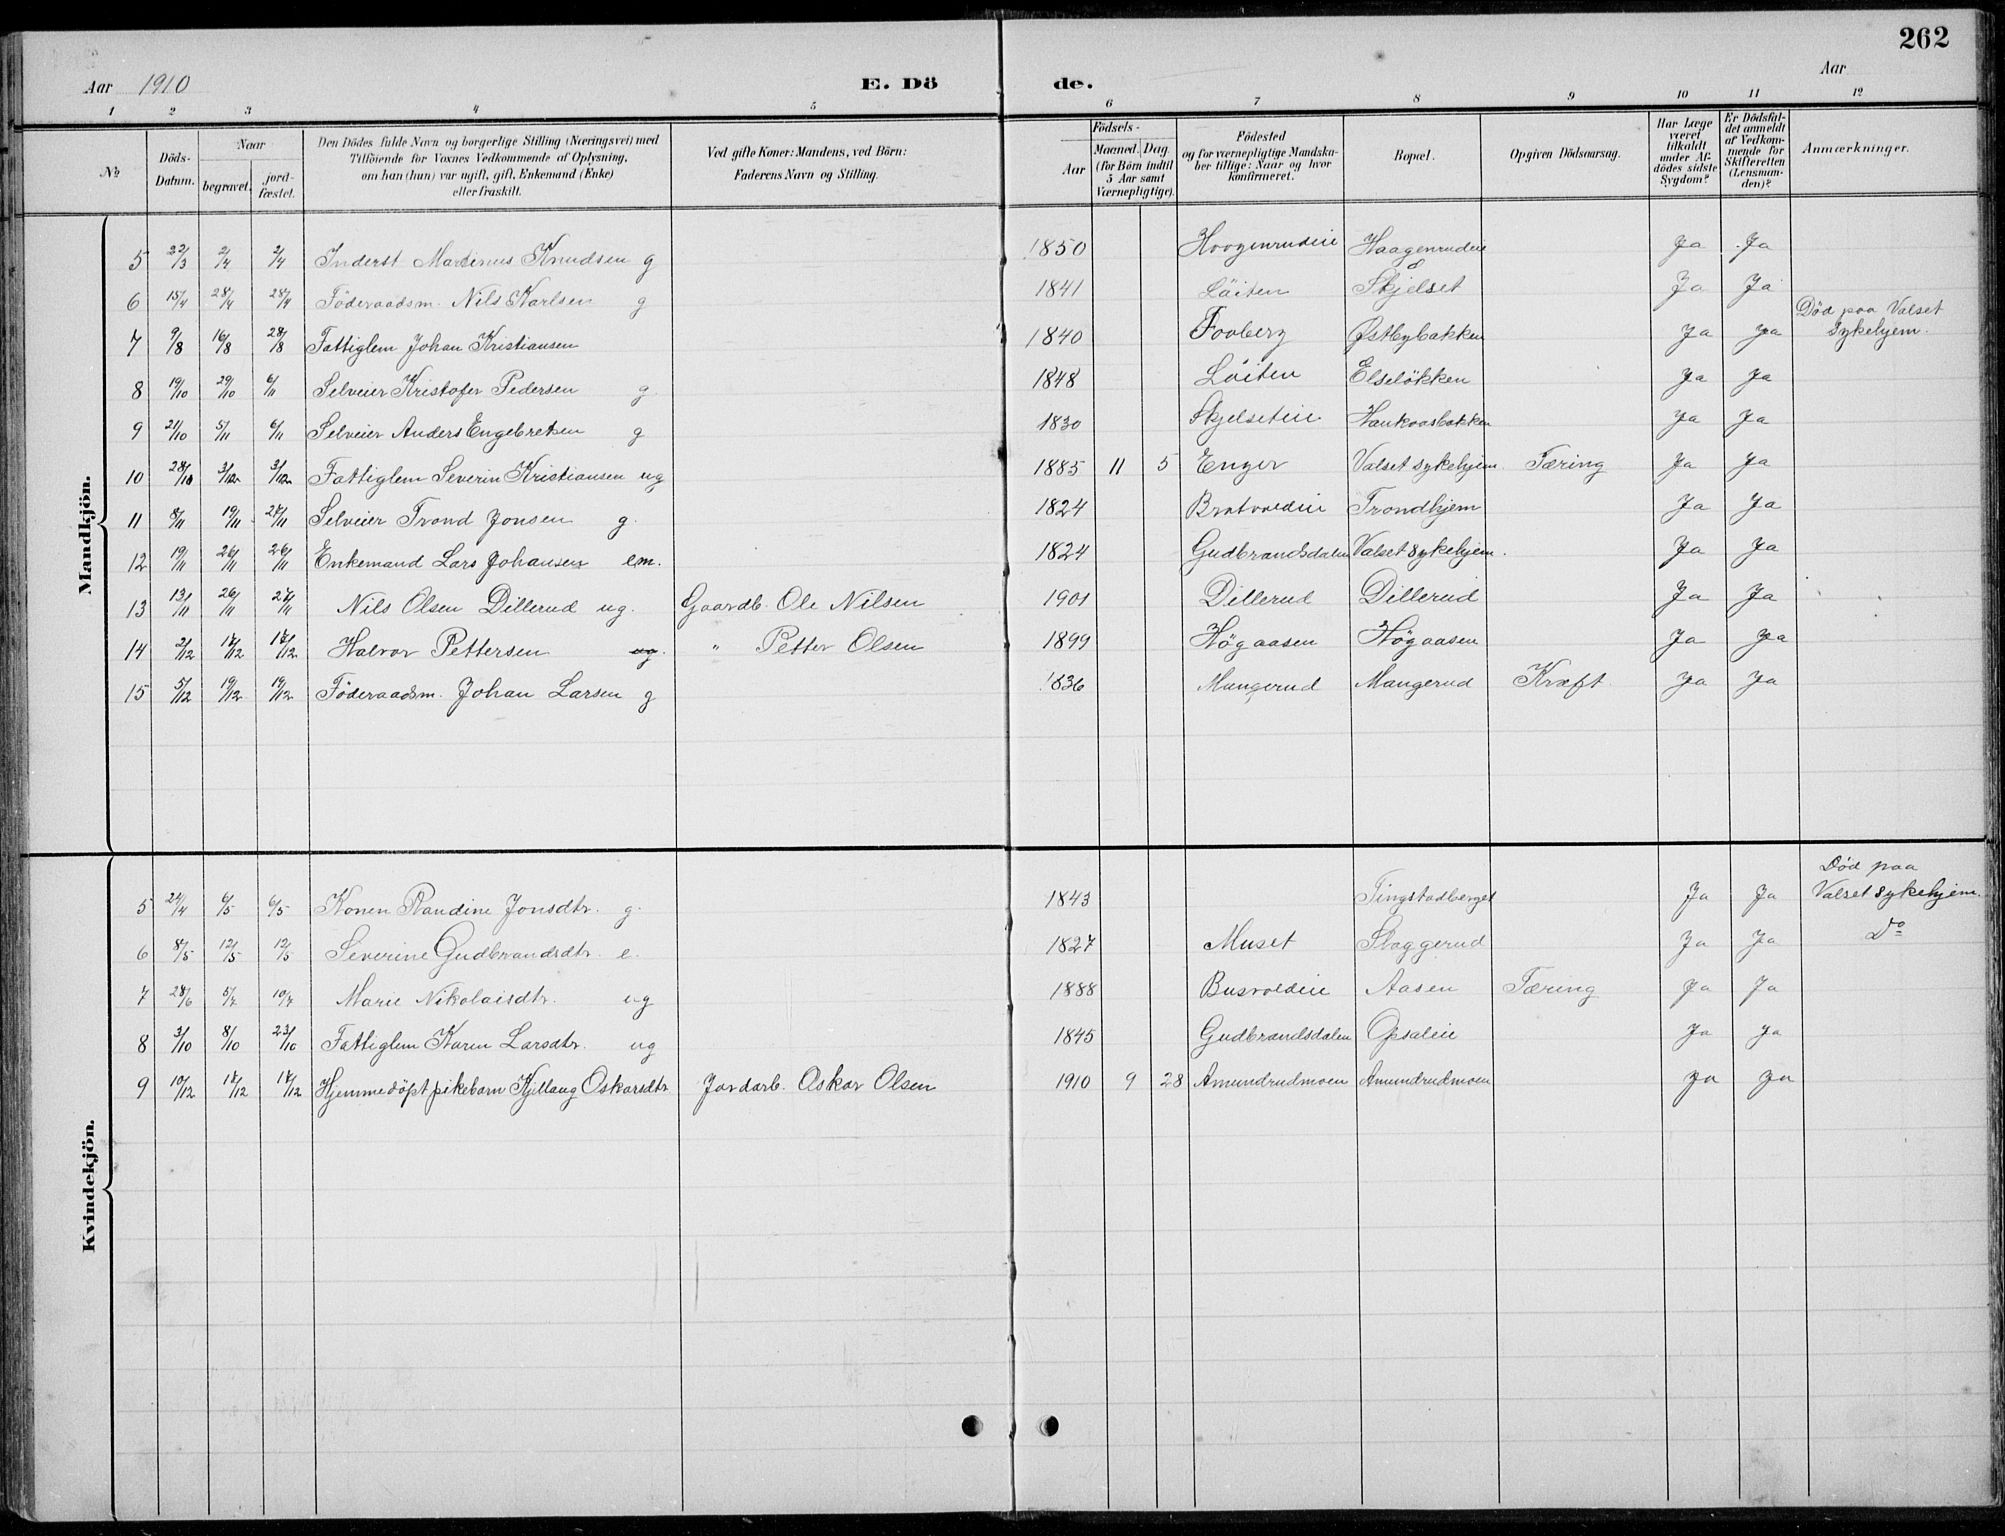 262
Aar 1910 E. Dö de. Aar
1 2 3 4 5 6 7 8 9 10 11 12
No
Döds-Datum.
Naar
begravet.
jordfæstet.
Den Dödes fulde Navn og borgerlige Stilling (Næringsvei) med
Tilföiende for Voxnes Vedkommende af Oplysning,
om han (hun) var ugift, gift, Enkemand (Enke)
eller fraskilt.
Ved gifte Koner: Mandens, ved Börn:
Faderens Navn og Stilling.
Födsels-
Aar
Maaned. Dag.
(for Börn indtil
5 Aar samt
Værnepligtige).
Födested
og for værnepligtige Mandskaber
tillige: Naar og hvor
konfirmeret.
Bopæl.
Opgiven Dödsaarsag.
Har Læge
været
tilkaldt
under Afdödes
sidste
Sygdom?
Er Dödsfaldet
anmeldt
af Vedkommende
for
Skifteretten
(Lensmanden)?
Anmærkninger.
Mandkjön.
5 22/3 2/4 2/4 Inderst Martinus Knudsen g 1850 Haagenrudeie Haagenrudeie Ja Ja
6 15/4 28/4 28/4 Föderaadsm. Nils Karlsen g 1841 Löiten Skjelset Ja Ja
7 9/8 16/8 28/8 Fattiglem Johan Kristiansen 1840 Faaberg Østbybakken Ja Ja Død paa Valset Sykehjem.
8 19/10 29/10 6/11 Selveier Kristofer Pedersen g 1848 Löiten Elseløkken Ja Ja
9 21/10 5/11 6/11 Selveier Anders Engebretsen g 1830 Skjelseteie Haukaasbakken Ja Ja
10 28/10 3/12 3/12 Fattiglem Severin Kristiansen ug 1885 11 5 Enger Valset sykehjem Tæring Ja Ja
11 8/11 19/11 27/11 Selveier Trond Jonsen g. 1824 Bratvoldeie Trondhjem Ja Ja
12 19/11 26/11 26/11 Enkemand Lars Johansen em. 1824 Gudbrandsdalen Valset Sykehjem. Ja Ja
13 13/11 26/11 27/11 Nils Olsen Dillerud ug. Gaardb. Ole Nilsen 1901 Dillerud Dillerud Ja Ja
14 2/12 17/12 17/12 Halvor Pettersen ug. " Petter Olsen 1899 Høgaasen Høgaasen Ja Ja
15 5/12 19/12 19/12 Föderaadsm. Johan Larsen g 1836 Mangerud Mangerud Kræft Ja Ja
Kvindekjön.
5 24/4 6/5 6/5 Konen Randine Jonsdtr. g. 1843 Tingstadberget Ja Ja Død paa Valset Sykehjem.
6 8/5 12/5 12/5 Severine Gudbrandsdtr. e. 1827 Muset Skaggerud Ja Ja Do
7 28/6 5/7 10/7 Marie Nikolaisdtr. ug 1888 Busvoldeie Aasen Tæring Ja Ja
8 3/10 8/10 23/10 Fattiglem Karen Larsdtr. ug 1845 Gudbrandsdalen Opsaleie Ja Ja
9 10/12 17/12 17/12 Hjemmedöpt pikebarn Kjellaug Oskarsdtr Jordarb. Oskar Olsen 1910 9 28 Amundrudmoen Amundrudmoen Ja Ja